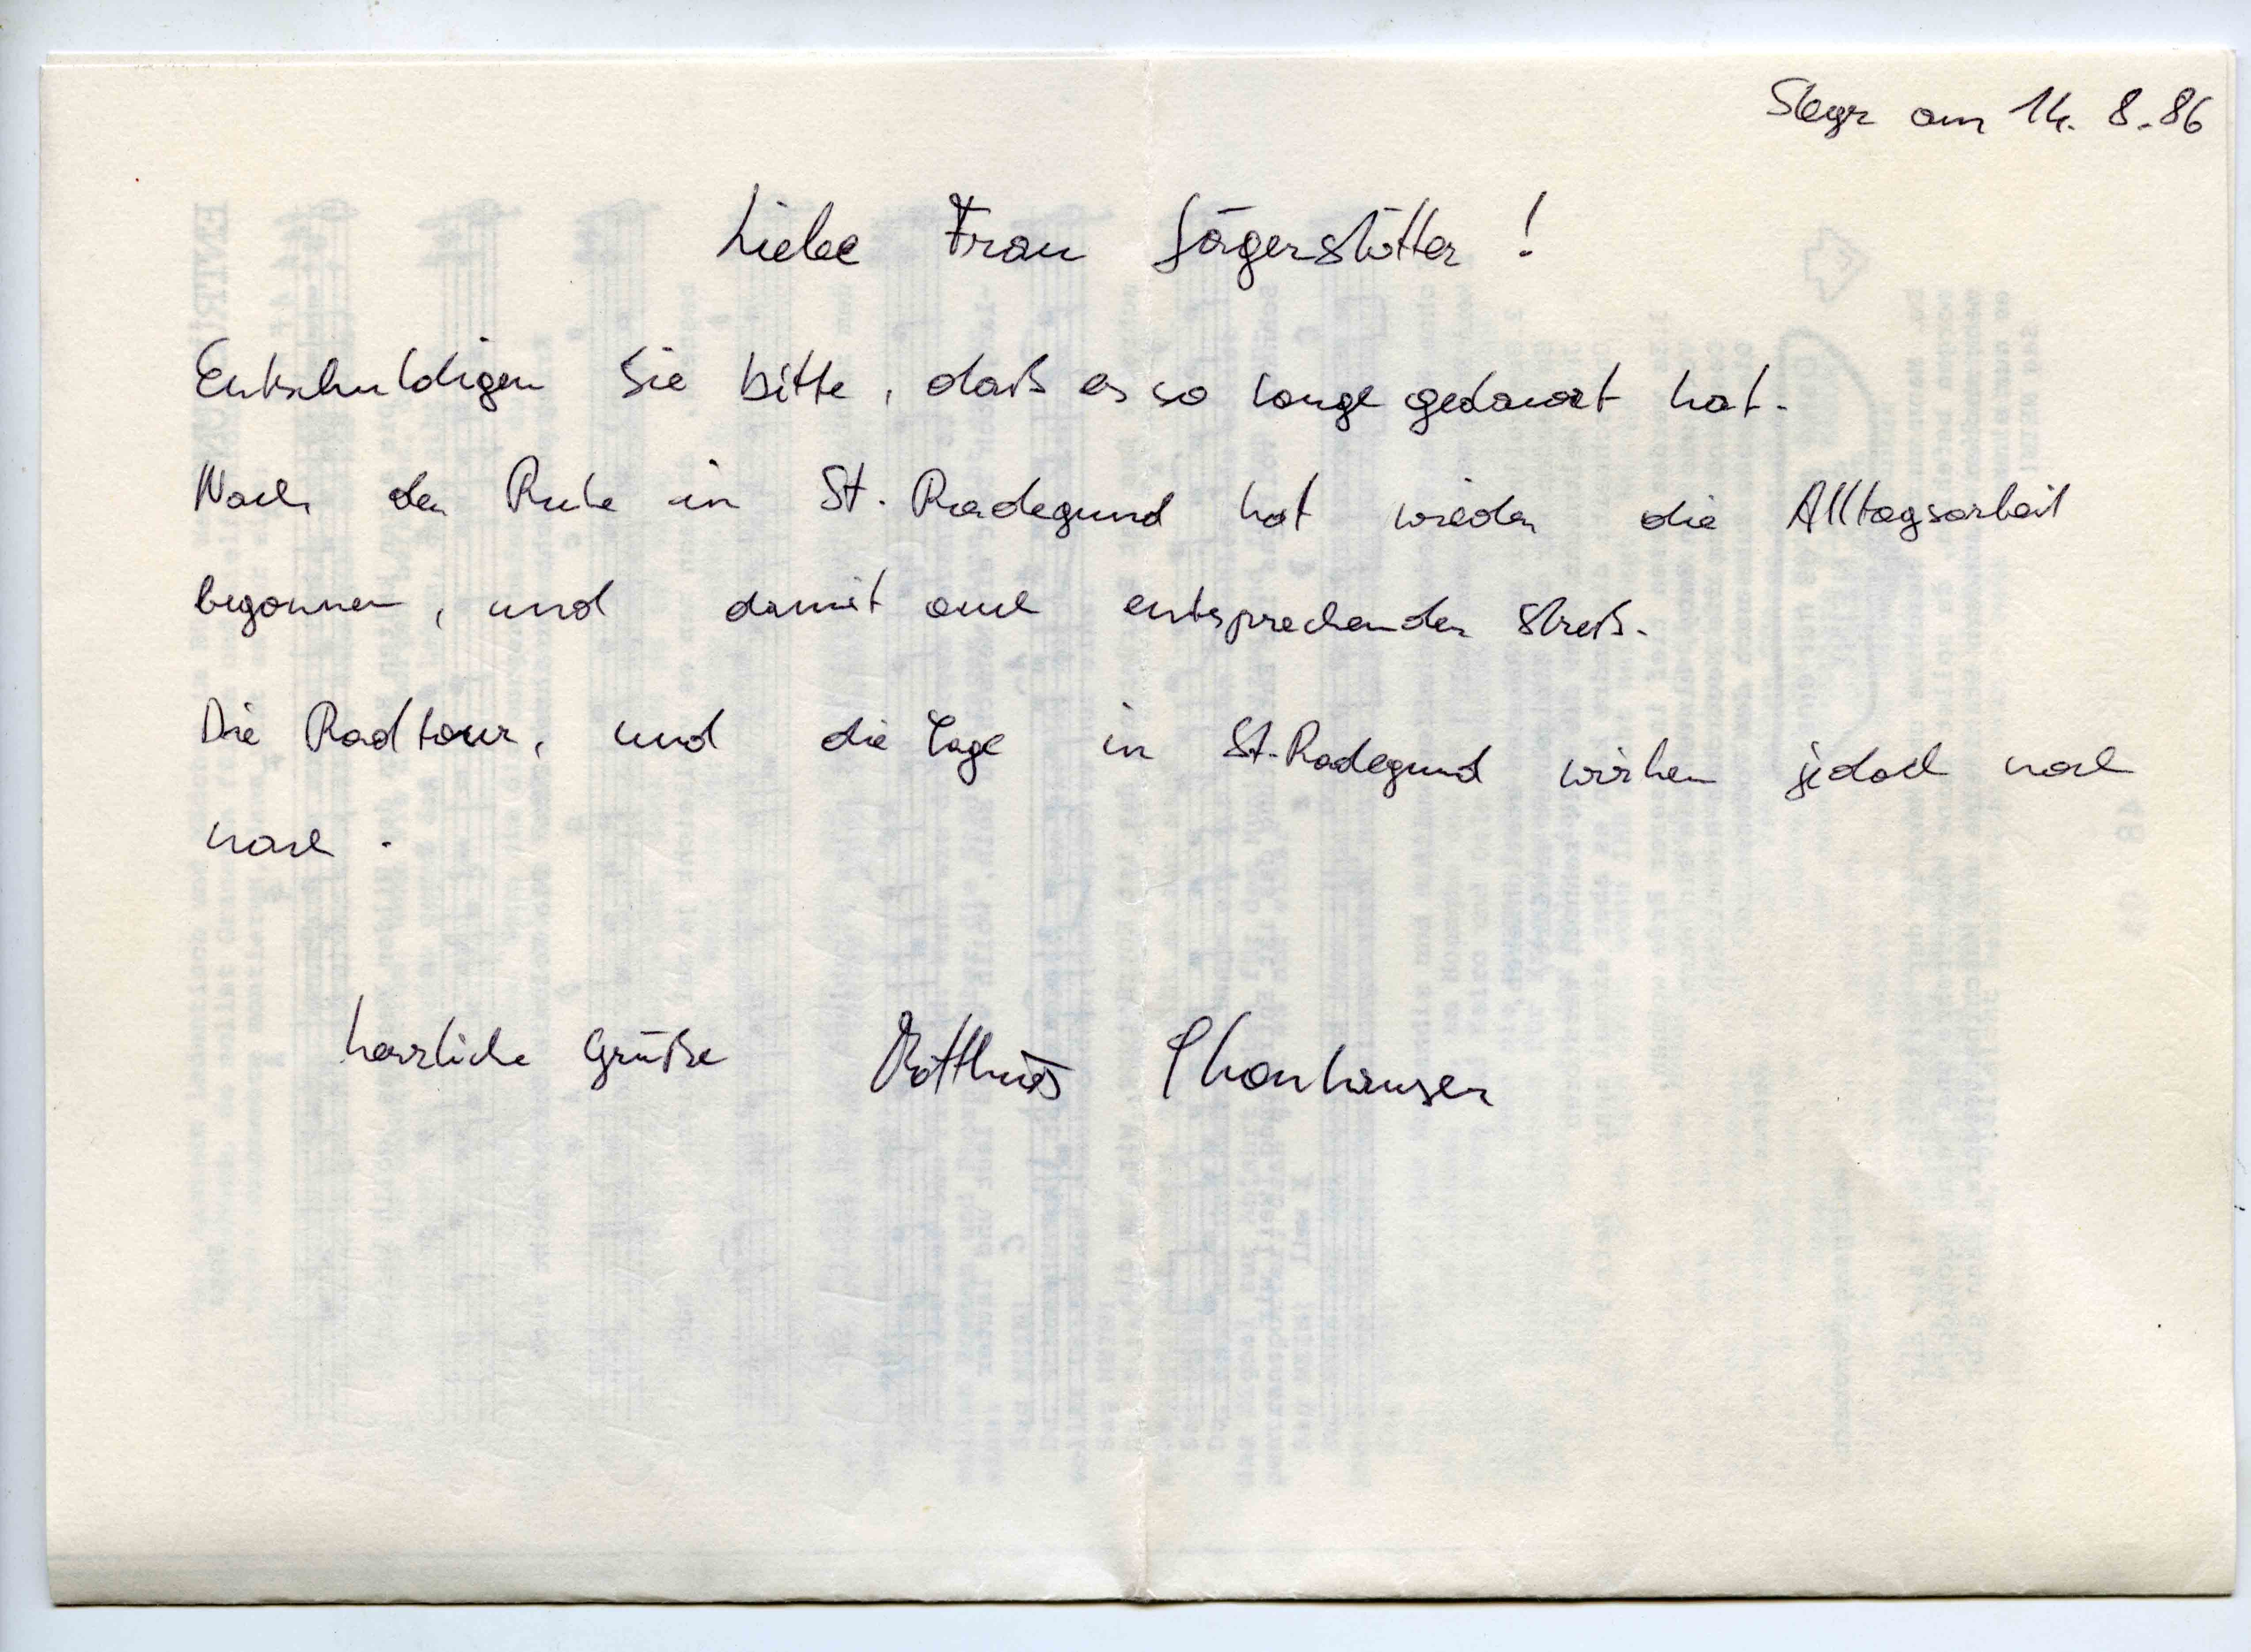 Steyr am 14. 8. 86
Liebe Frau Jägerstätter !
Entschuldigen Sie bitte, daß es so lange gedauert hat.
Nach der Ruhe in St. Radegund hat wieder die Alltagsarbeit
begonnen, und damit auch entsprechender Streß.
Die Radtour, und die Tage in St. Radegund wirken jedoch noch
nach .
herzliche Grüße Matthias